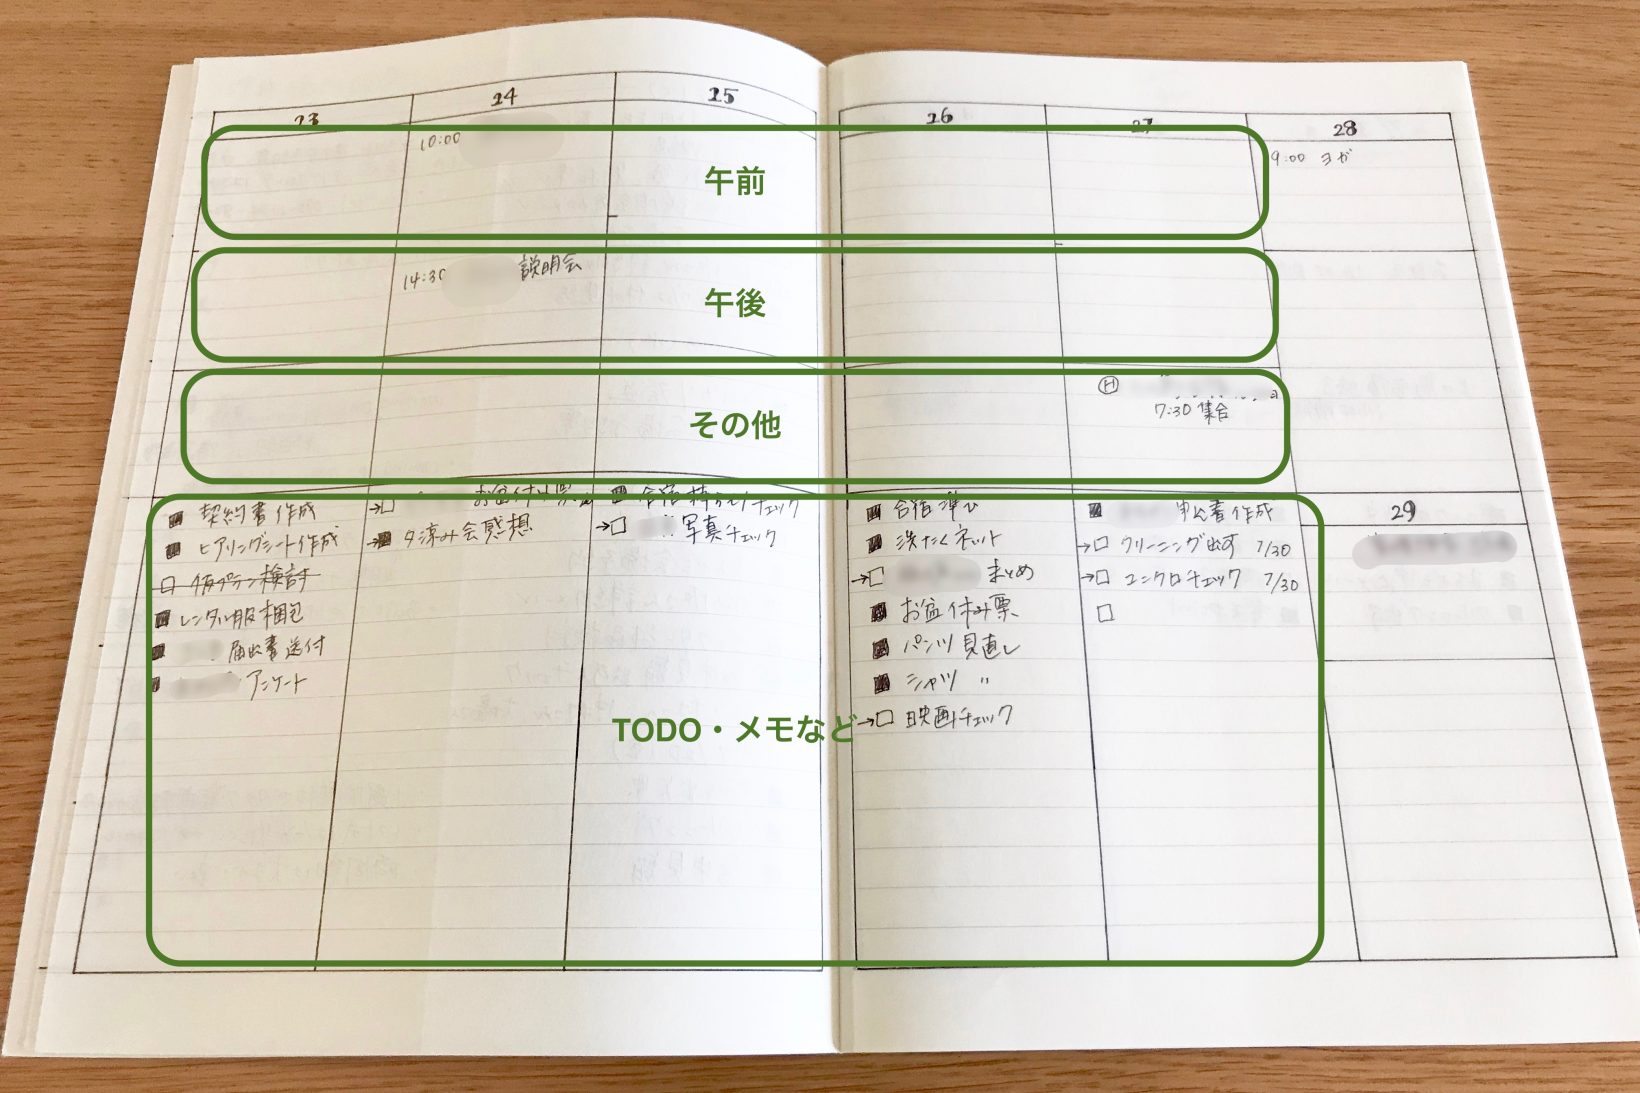 23
24
25
26
27
28
10:00
午前
9:00 ヨガ
14:30
説明会
午後
その他
H
7:30 集合
契約書作成
ヒアリングシート作成
仮プラン検討
レンタル服梱包
届出書送付
アンケート
→
→ 夕涼み会感想
チェック
→ 写真チェック
TODO・メモなど
合宿準び
洗たくネット
→ まとめ
お盆休み票
パンツ見直し
シャツ 〃
→ 映画チェック
申込書作成
→ クリーニング出す 7/30
→ ユニクロチェック 7/30
29